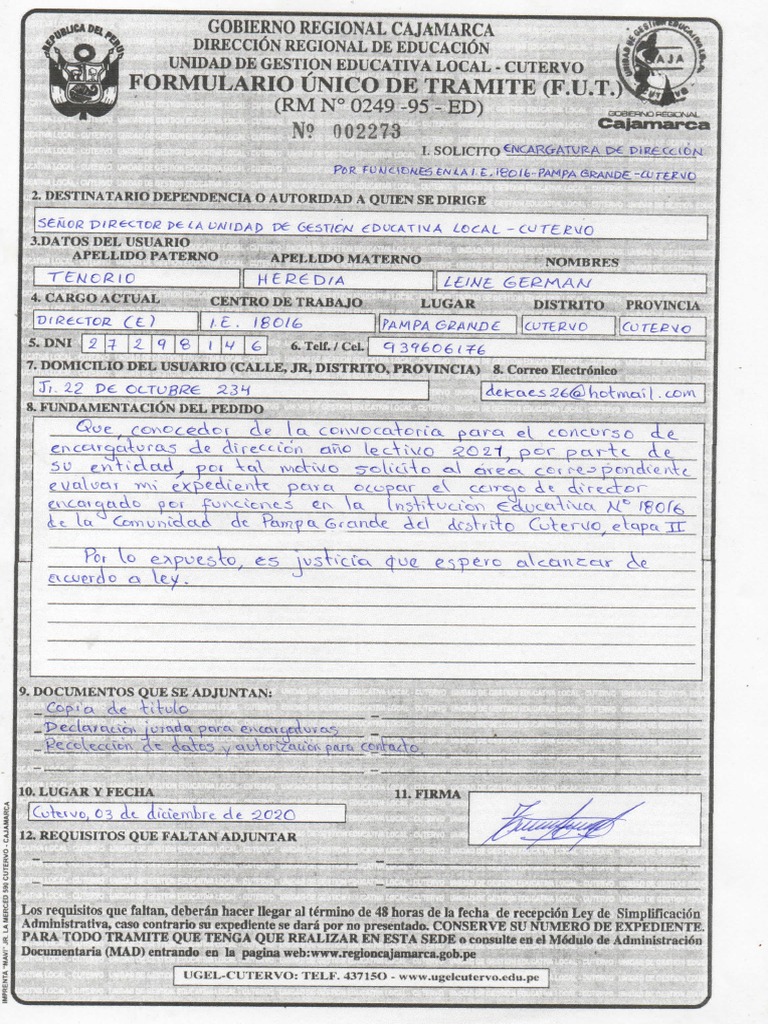 GOBIERNO REGIONAL CAJAMARCA
DIRECCIÓN REGIONAL DE EDUCACIÓN
UNIDAD DE GESTION EDUCATIVA LOCAL - CUTERVO
FORMULARIO ÚNICO DE TRAMITE (F.U.T.)
(RM N° 0249 -95 - ED)
REPUBLICA DEL PERU
GOBIERNO REGIONAL
Cajamarca
Nº 002273
1. SOLICITO ENCARGATURA DE DIRECCIÓN
POR FUNCIONES EN LA I.E. 18016-PAMPA GRANDE-CUTERVO
2. DESTINATARIO DEPENDENCIA O AUTORIDAD A QUIEN SE DIRIGE
SEÑOR DIRECTOR DE LA UNIDAD DE GESTIÓN EDUCATIVA LOCAL - CUTERVO
3.DATOS DEL USUARIO
APELLIDO PATERNO APELLIDO MATERNO NOMBRES
TENORIO HEREDIA LEINE GERMAN
4. CARGO ACTUAL CENTRO DE TRABAJO LUGAR DISTRITO PROVINCIA
DIRECTOR (E) I.E. 18016 PAMPA GRANDE CUTERVO CUTERVO
5. DNI 2 7 2 9 8 1 4 6 6. Telf. / Cel. 939606176
7. DOMICILIO DEL USUARIO (CALLE, JR, DISTRITO, PROVINCIA) 8. Correo Electrónico
Jr. 22 DE OCTUBRE 234 dekaes26@hotmail.com
8. FUNDAMENTACIÓN DEL PEDIDO
Que, conocedor de la convocatoria para el concurso de
encargaturas de dirección año lectivo 2021, por parte de
su entidad, por tal motivo solicito al área correspondiente
evaluar mi expediente para ocupar el cargo de director
encargado por funciones en la Institución Educativa N° 18016
de la Comunidad de Pampa Grande del distrito Cutervo, etapa II
Por lo expuesto, es justicia que espero alcanzar de
acuerdo a ley.
9. DOCUMENTOS QUE SE ADJUNTAN:
Copia de título
Declaración jurada para encargaturas
Recolección de datos y autorización para contacto.
10. LUGAR Y FECHA 11. FIRMA
Cutervo, 03 de diciembre de 2020
12. REQUISITOS QUE FALTAN ADJUNTAR
Los requisitos que faltan, deberán hacer llegar al término de 48 horas de la fecha de recepción Ley de Simplificación
Administrativa, caso contrario su expediente se dará por no presentado. CONSERVE SU NUMERO DE EXPEDIENTE.
PARA TODO TRAMITE QUE TENGA QUE REALIZAR EN ESTA SEDE o consulte en el Módulo de Administración
Documentaria (MAD) entrando en la pagina web:www.regioncajamarca.gob.pe
UGEL-CUTERVO: TELF. 437150 - www.ugelcutervo.edu.pe
IMPRENTA "NAVI" JR. LA MERCED 590 CUTERVO - CAJAMARCA